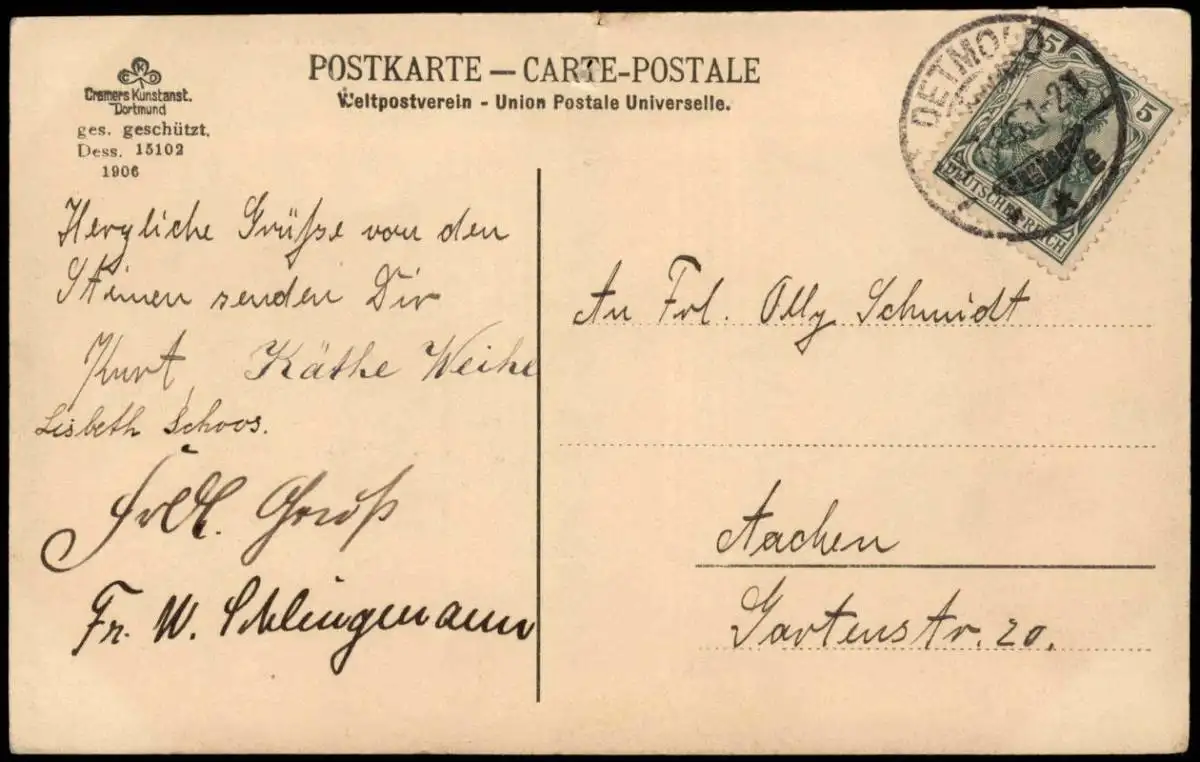 POSTKARTE — CARTE-POSTALE
Weltpostverein - Union Postale Universelle.
Cramers Kunstanst.
Dortmund
ges. geschützt.
Dess. 15102
1906
DETMOLD
5
5
DEUTSCHES REICH
Herzliche Grüße von den
Steinen senden Dir
Kurt, Käthe Weihe
Lisbeth Schoos.
Frdl. Gruß
Fr. W. Schlingmann
An Frl. Olly Schmidt
Aachen
Gartenstr. 20.